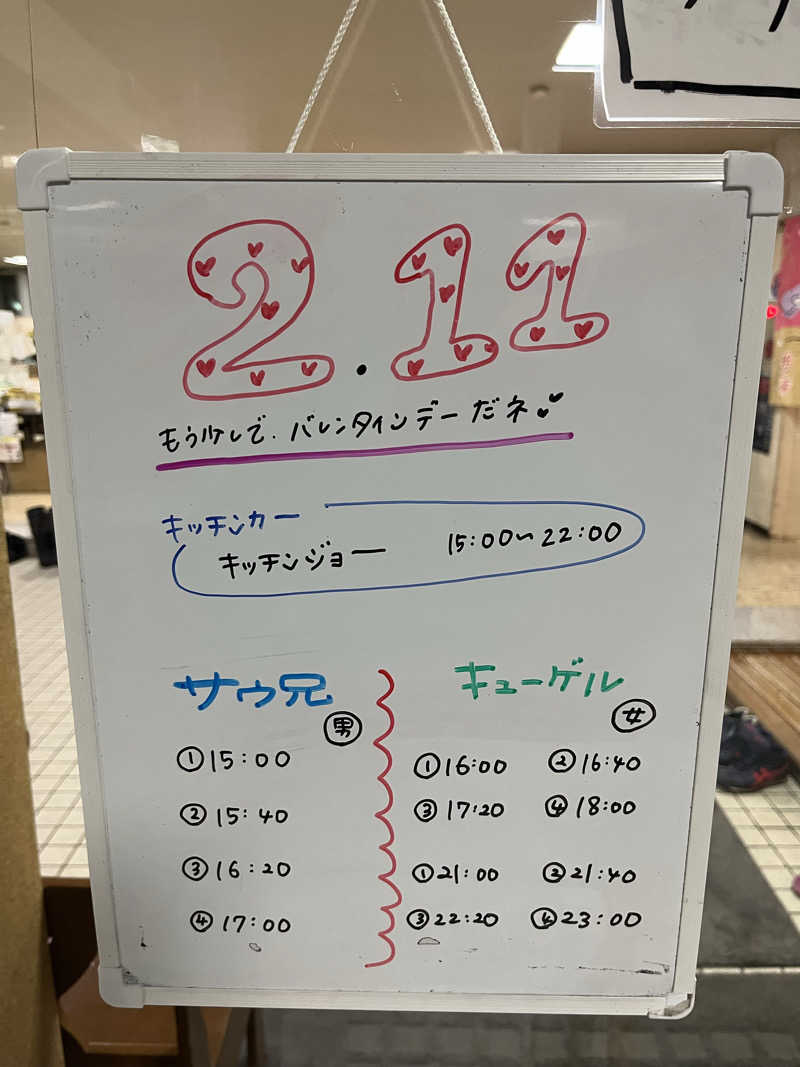 2.11
もう少しで.バレンタインデーだネ
キッチンカー
キッチンジョー 15:00〜22:00
サウ兄
男
①15:00
②15:40
③16:20
④17:00
キューゲル
女
①16:00 ②16:40
③17:20 ④18:00
①21:00 ②21:40
③22:20 ④23:00